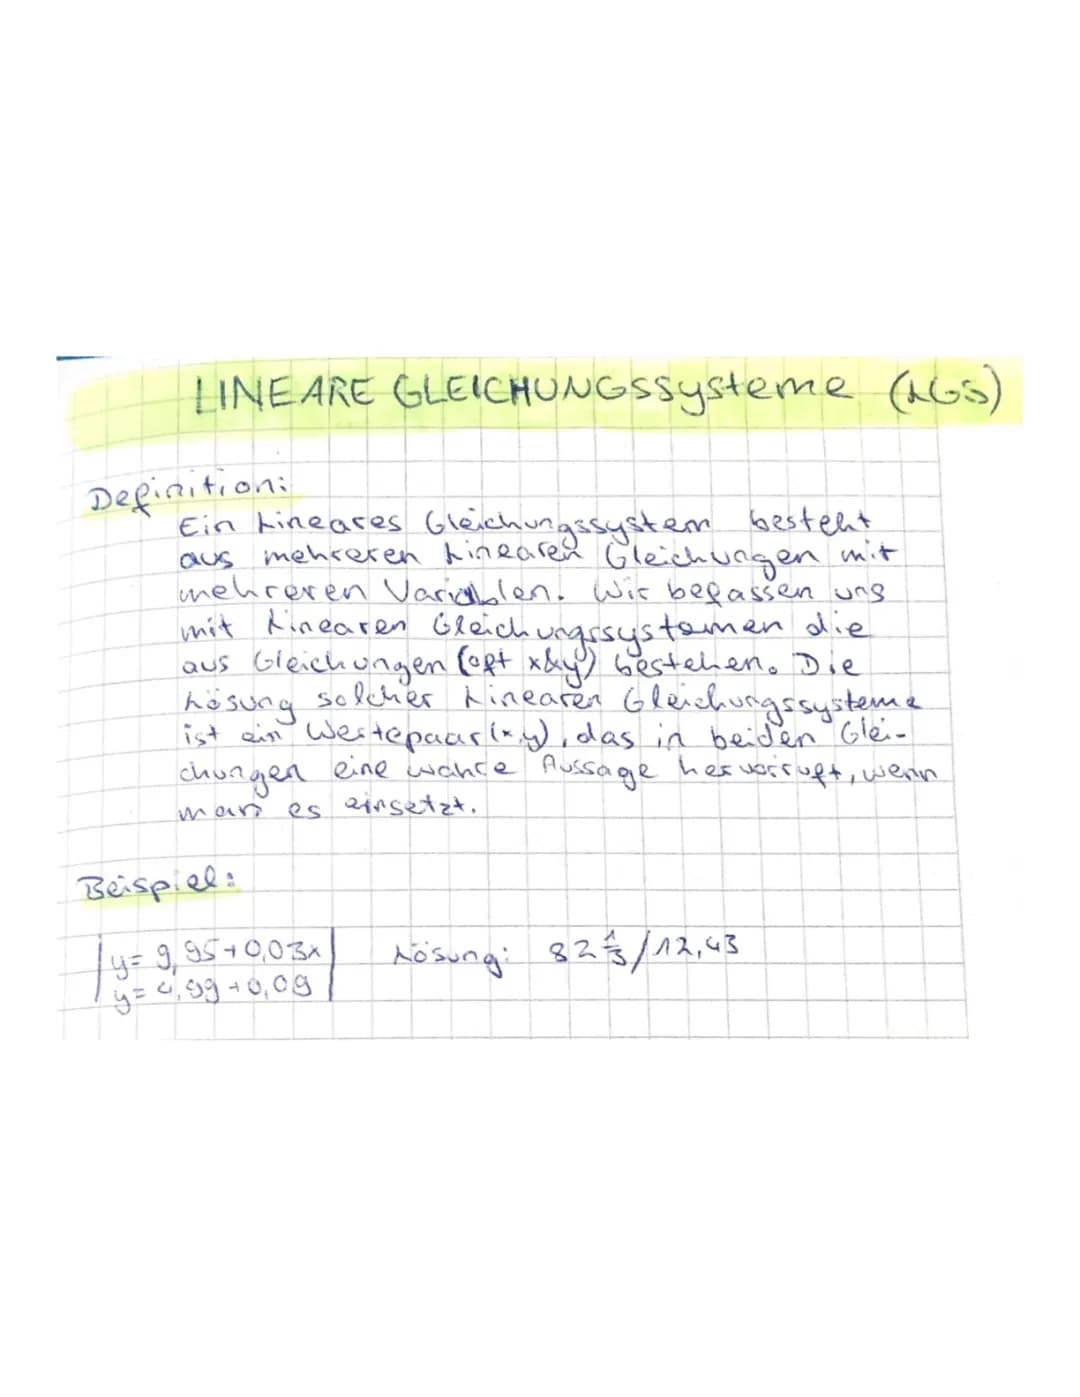 LINEARE GLEICHUNGSsysteme (LGS)
Definition:
Ein Lineares Gleichungssystem besteht
aus mehreren Linearen Gleichungen mit
mehreren Variablen. Wir befassen uns
mit Linearen Gleichungssystemen die
aus Gleichungen (oft x&y) bestehen. Die
Lösung solcher Linearen Gleichungssysteme
ist ein Wertepaar (x,y), das in beiden Glei-
chungen eine wahre Aussage hervorruft, wenn
man es einsetzt.
Beispiel:
y= 9,95+0,03x Lösung: 82 1/3 / 12,43
y= 4,99+0,09